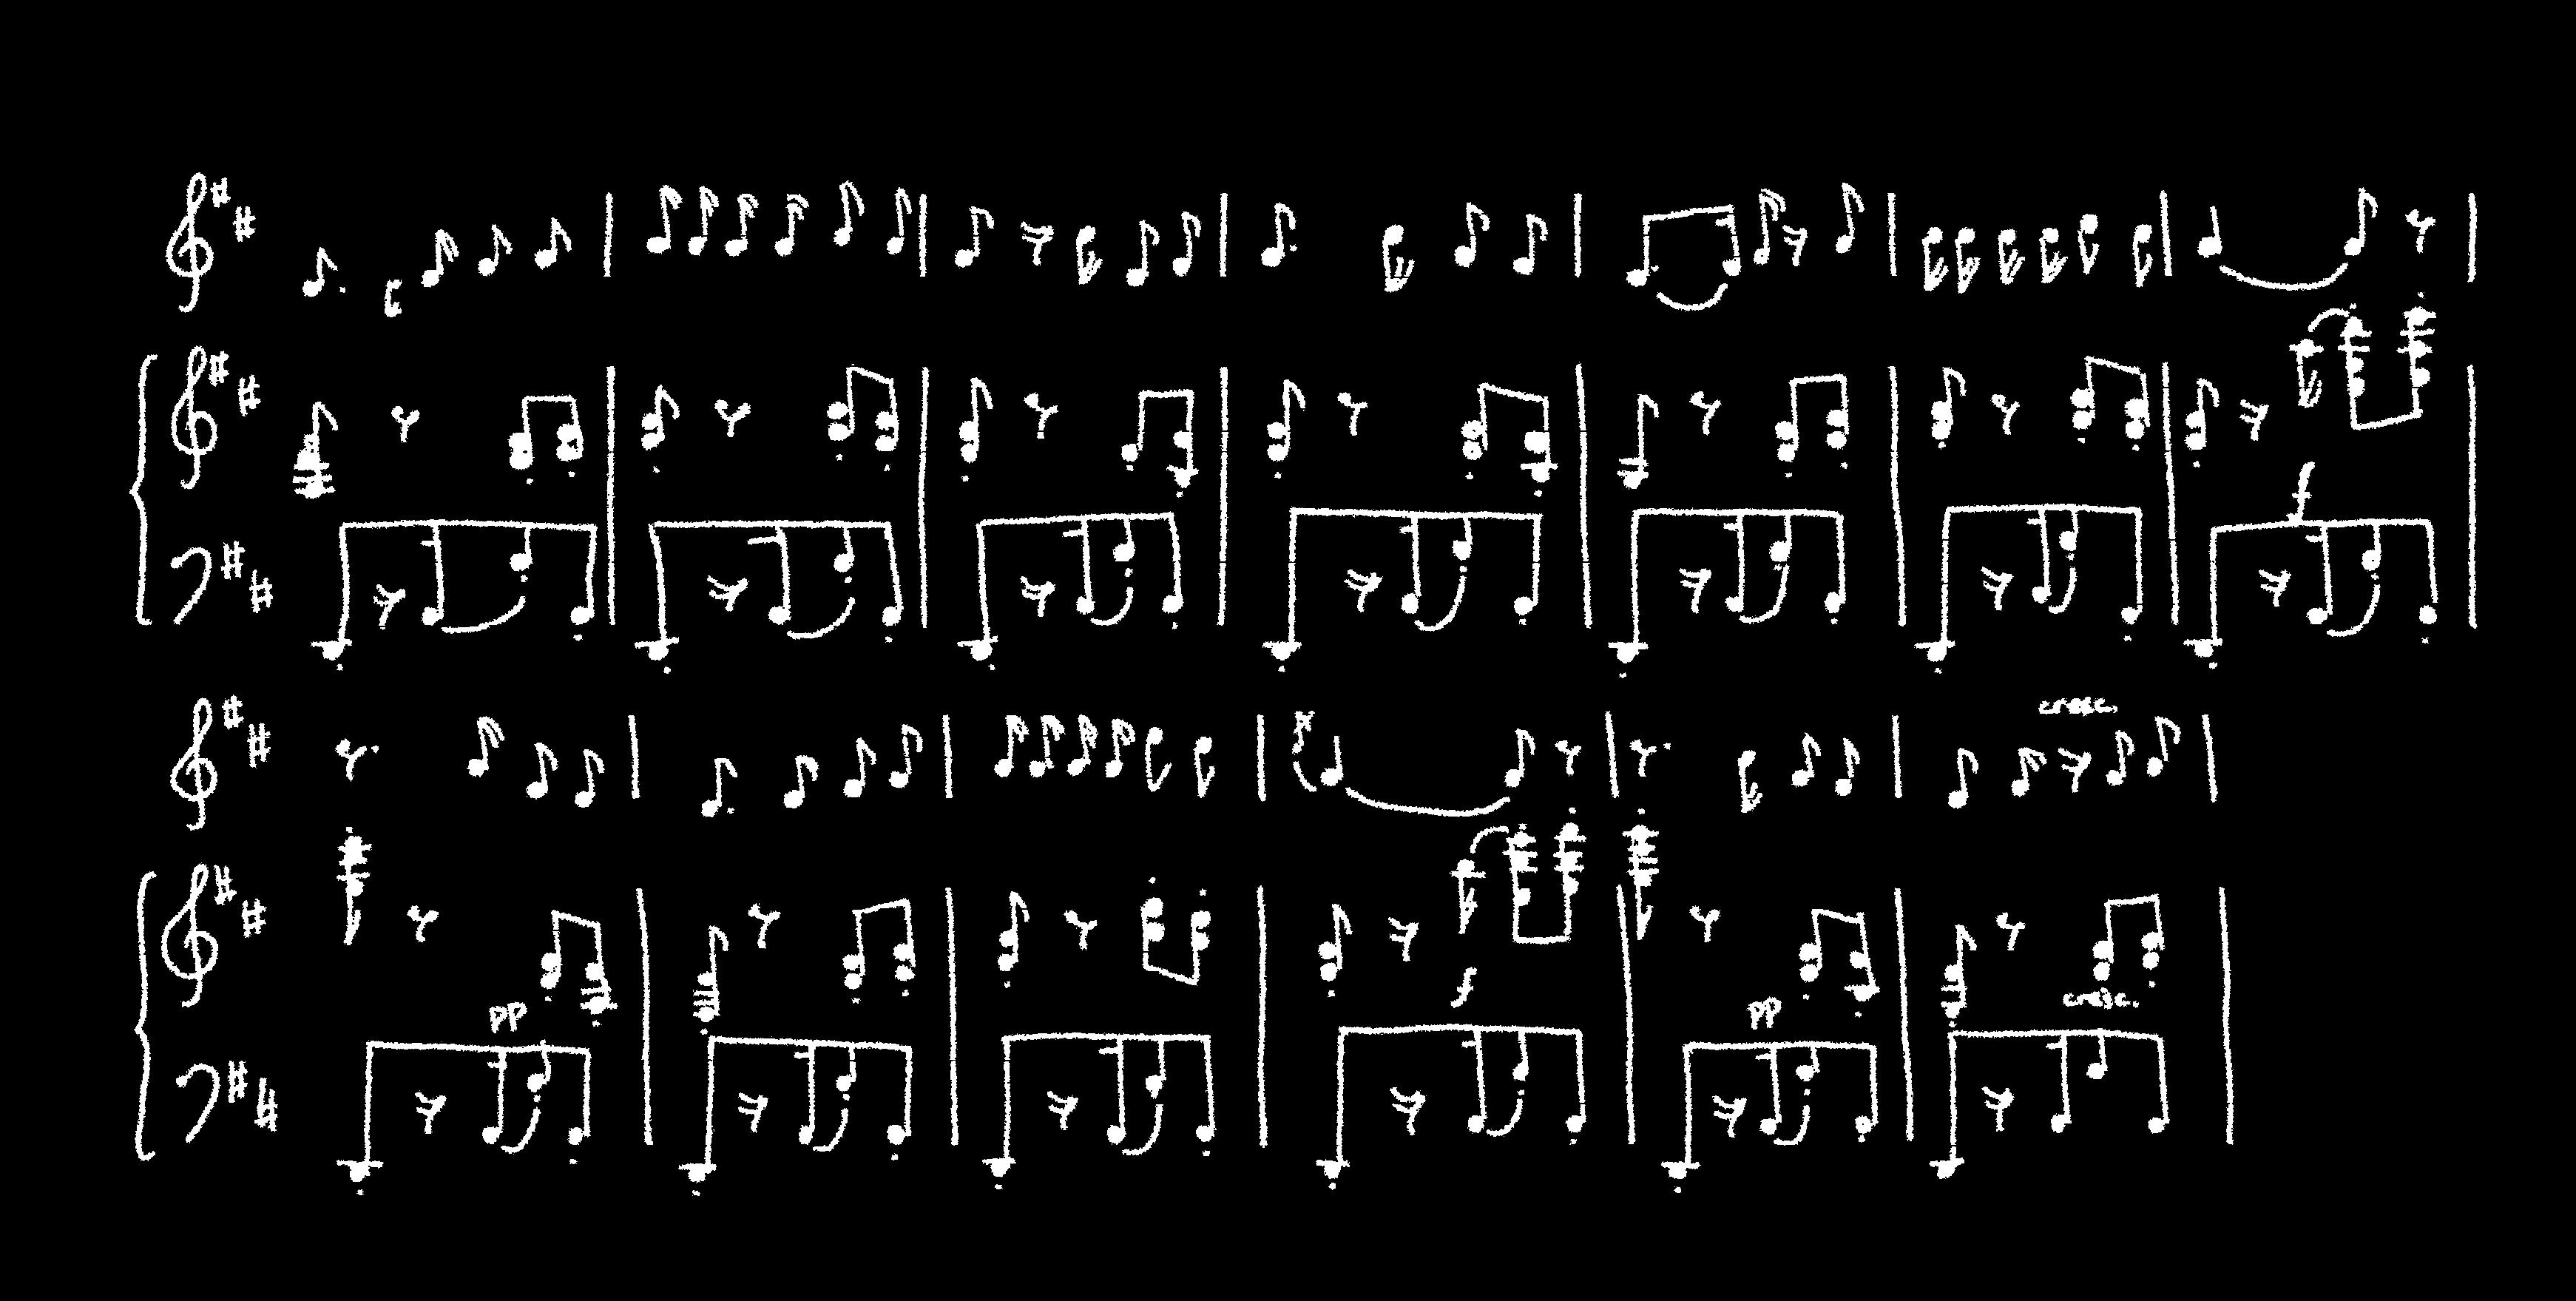 f
cresc.
f
pp
pp
cresc.